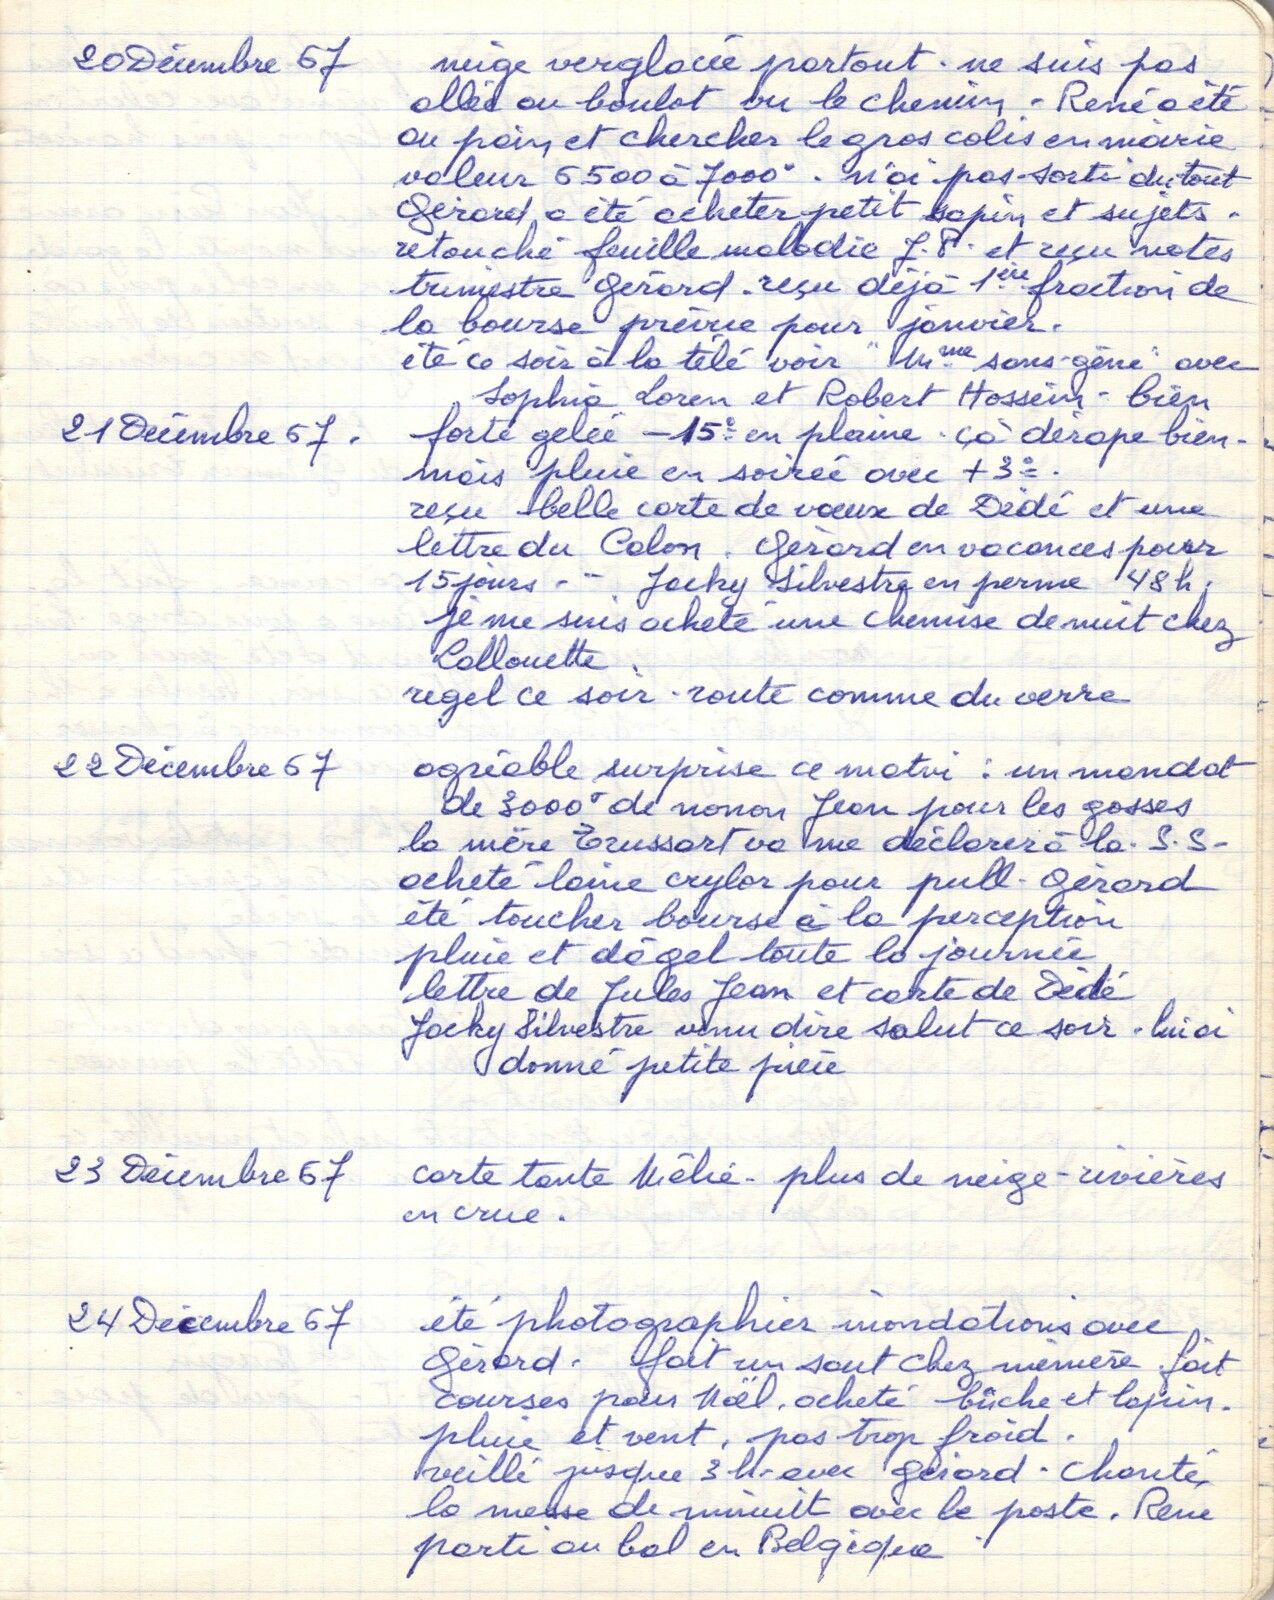 20 Décembre 67 neige verglacée partout. ne suis pas
allée au boulot vu le chemin - René a été
au pain et chercher le gros colis en mairie
valeur 6500 à 7000°. n'ai pas sorti du tout
Gérard a été acheter petit sapin et sujets.
retouché feuille maladie J.P. et reçu notes
trimestre Gérard. reçu déjà 1ère fraction de
la bourse prévue pour janvier.
été ce soir à la télé voir "Mme sans-gêne" avec
Sophia Loren et Robert Hossein - bien
21 Décembre 67. forte gelée -15° en plaine. çà dérape bien -
mais pluie en soirée avec +3°.
reçu belle carte de vœux de Dédé et une
lettre du Colon. Gérard en vacances pour
15 jours -- Jacky Silvestre en perme 48 h.
je me suis acheté une chemise de nuit chez
Lallouette.
regel ce soir - route comme du verre
22 Décembre 67 agréable surprise ce matin : un mandat
de 3000° de nonon Jean pour les gosses
la mère Trussart va me déclarer à la S.S -
acheté laine crylor pour pull - Gérard
été toucher bourse à la perception
pluie et dégel toute la journée
lettre de Jules Jean et carte de Dédé
Jacky Silvestre venu dire salut ce soir. lui ai
donné petite pièce
23 Décembre 67 carte tante Mélie - plus de neige - rivières
en crue.
24 Décembre 67 été photographier inondations avec
Gérard. fait un saut chez mémère. fait
courses pour Noël, acheté bûche et lapin.
pluie et vent, pas trop froid.
veillé jusque 3 h - avec Gérard - chanté
la messe de minuit avec le poste. René
parti au bal en Belgique